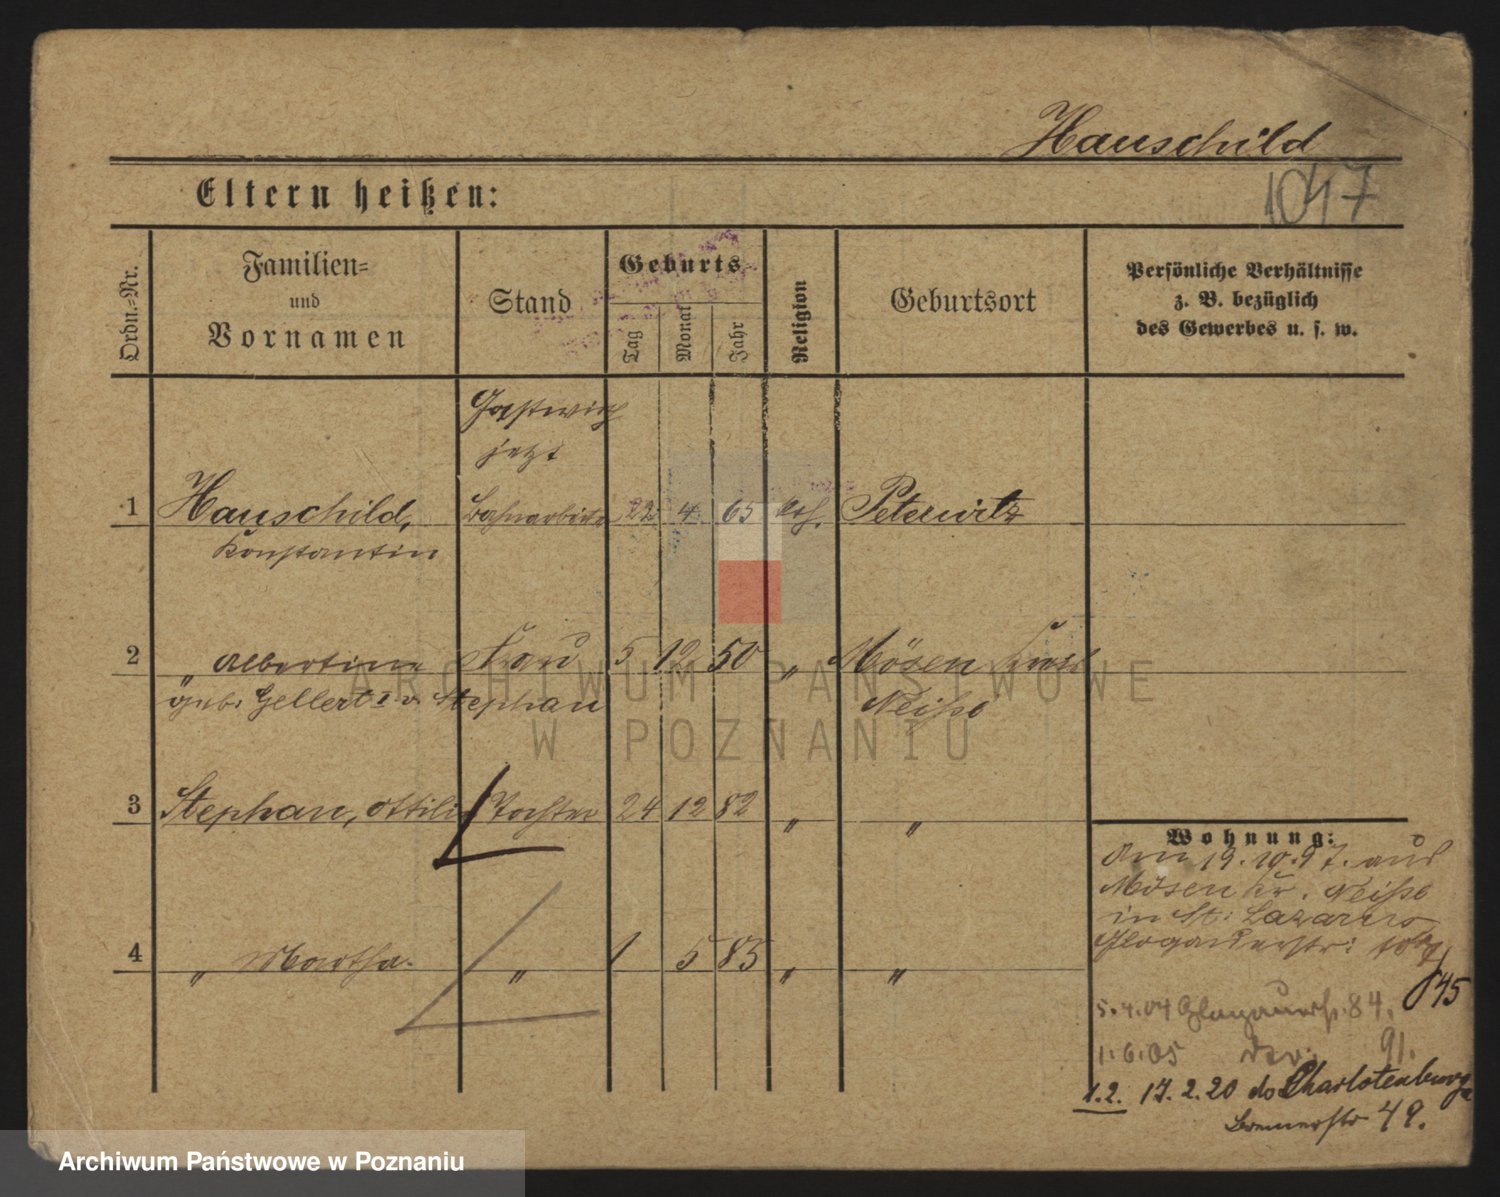 Hauschild
1047
Eltern heißen:
Ordn.-Nr.
Familien-
und
Vornamen
Stand
Geburts
Tag
Monat
Jahr
Religion
Geburtsort
Persönliche Verhältnisse
z. B. bezüglich
des Gewerbes u. s. w.
Gastwirth
jetzt
1 Hauschild, Bahnarbeiter 22 4 65 kath. Peterwitz
Konstantin
2 „ Albertine Frau 5 12 50 „ Mösen Kreis
geb. Gellert I. v. Stephan Neiße
3 Stephan, Ottilie Tochter 24 12 82 „ „
Wohnung:
Am 19.10.97. aus
Mösen Kr. Neiße
in St. Lazarus
Glogauerstr:
4 „ Martha. „ 1 5 85 „ „
45
5.4.04 Glogauerstr. 84.
1.6.05 91.
1.2. 17.2.20 Charlotenburg
49.
ARCHIWUM PAŃSTWOWE
W POZNANIU
Archiwum Państwowe w Poznaniu